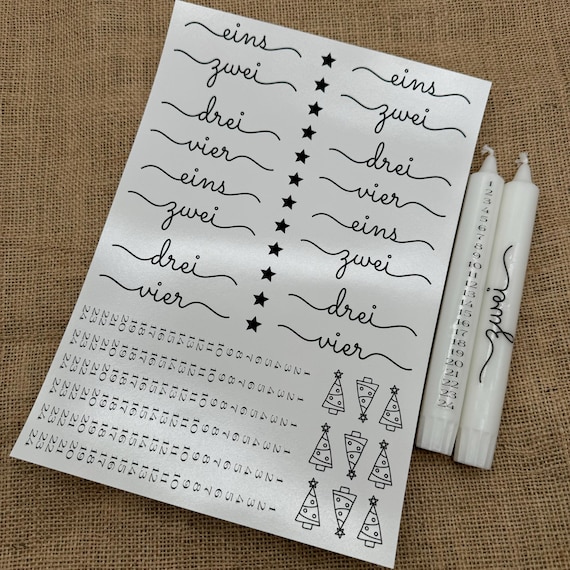 eins
zwei
drei
vier
eins
zwei
drei
vier
eins
zwei
drei
vier
eins
zwei
drei
vier
1 2 3 4 5 6 7 8 9 10 11 12 13 14 15 16 17 18 19 20 21 22 23 24
1 2 3 4 5 6 7 8 9 10 11 12 13 14 15 16 17 18 19 20 21 22 23 24
1 2 3 4 5 6 7 8 9 10 11 12 13 14 15 16 17 18 19 20 21 22 23 24
1 2 3 4 5 6 7 8 9 10 11 12 13 14 15 16 17 18 19 20 21 22 23 24
1 2 3 4 5 6 7 8 9 10 11 12 13 14 15 16 17 18 19 20 21 22 23 24
1 2 3 4 5 6 7 8 9 10 11 12 13 14 15 16 17 18 19 20 21 22 23 24
1 2 3 4 5 6 7 8 9 10 11 12 13 14 15 16 17 18 19 20 21 22 23 24
zwei